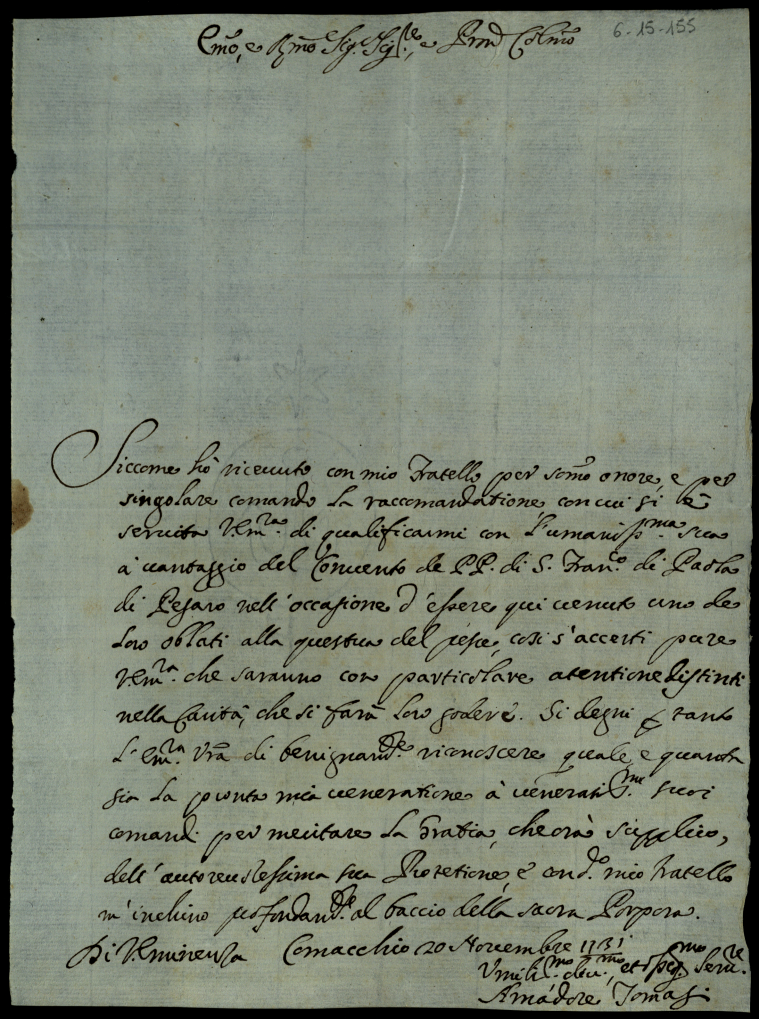 6-15-155
Em̃o, e Rm̃o Sig. Sig.re, e Pron Colm̃o
Siccome hò riceuuto con mio Fratello per som̃o onore, e per
singolare comando la raccomandatione con cui si è
seruita V.Em.ra di qualificarmi con l'umaniss.ma sua
à vantaggio del Conuento de PP. di S. Fran.co di Paola
di Pesaro nell'occasione d'essere qui uenuto uno de
loro oblati alla questua del pesce, così s'accerti pure
V.Em.ra che saranno con particolare atentione distinti
nella Carità, che si farà loro godere. Si degni ꝑ tanto
l'Em.ra Vrã di benignam.te riconoscere quale, e quanta
sia la pronta mia ueneratione à veneratis.mi suoi
comandi per meritare la Gratia, che orà supplico,
dell'autoreuolessima sua Protetione, e con d.o mio Fratello
m'inchino profondam.te al baccio della sacra Porpora.
Di V.Eminenza Comacchio 20 Nouembre 1731
Vmilis.mo diu.mo, et osseq.mo Seru.re
Amadore Tomasi